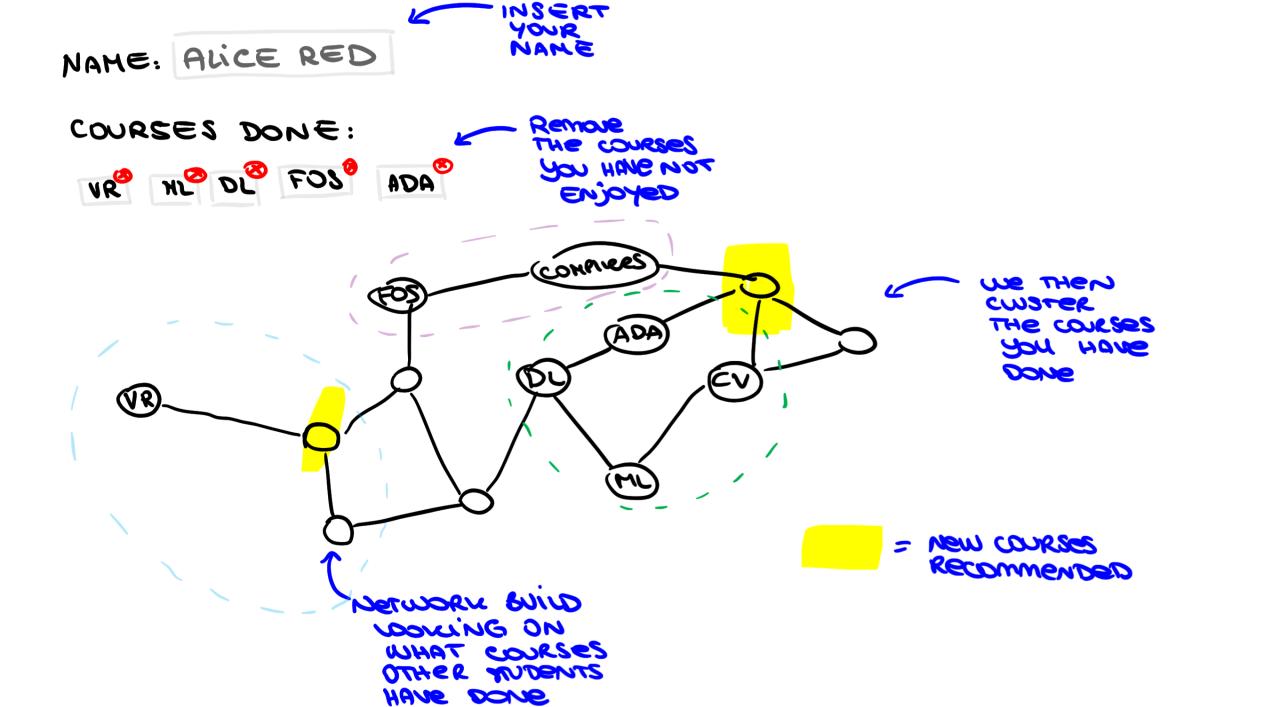 INSERT
YOUR
NAME
NAME: ALICE RED
COURSES DONE:
Remove
THE COURSES
YOU HAVE NOT
ENJOYED
VR ML DL FOS ADA
FOS
COMPILERS
ADA
DL
CV
VR
ML
WE THEN
CLUSTER
THE COURSES
YOU HAVE
DONE
= NEW COURSES
RECOMMENDED
NETWORK BUILD
LOOKING ON
WHAT COURSES
OTHER STUDENTS
HAVE DONE